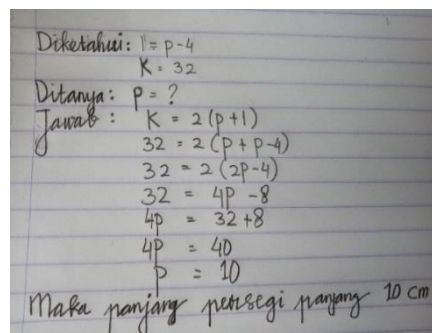 Diketahui: l = p-4
K = 32
Ditanya: p = ?
Jawab : K = 2(p+l)
32 = 2(p+p-4)
32 = 2(2p-4)
32 = 4p -8
4p = 32+8
4p = 40
p = 10
Maka panjang persegi panjang 10 cm